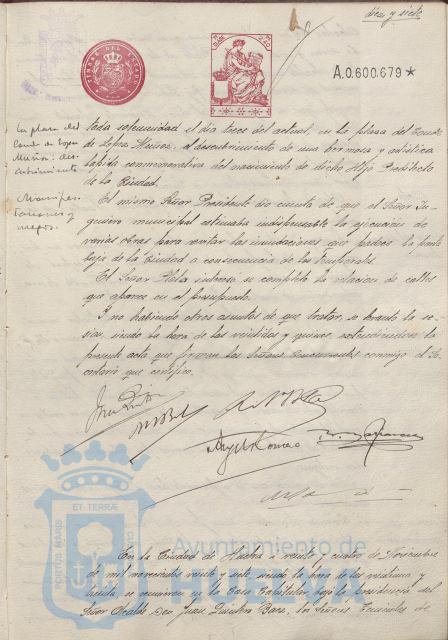 diez y siete
TIMBRE DEL ESTADO
A.0.600.679*
En plaza del
Conde de Lopez
Muñoz: des-
cubrimiento
toda solemnidad el dia trece del actual, en la plaza del Conde
de Lopez Muñoz, el descubrimiento de una hermosa y artística
lápida conmemorativa del nacimiento de dicho Hijo Predilecto
de la Ciudad.
Manifes-
taciones y
ruegos.
El mismo Señor Presidente dio cuenta de que el Señor In-
geniero municipal estimaba indispensable la ejecución de
varias obras para evitar las inundaciones que padece la parte
baja de la Ciudad a consecuencia de los temporales.
El Señor Plata interesó se complete la relacion de calles
que aparece en el presupuesto.
Y no habiendo otros asuntos de que tratar, se levantó la se-
sion, siendo la hora de las veintidos y quince, extendiendose la
presente acta que firman los Señores Concurrentes conmigo el Se-
cretario que certifico.
PORTUS MARIS ET TERRAE CUSTODIA
Ayuntamiento de
En la Ciudad de Huelva a veinte y cuatro de Noviembre
de mil novecientos veinte y siete, siendo la hora de las veintiuna y
treinta, se reunieron en la Casa Capitular bajo la presidencia del
Señor Alcalde Don Juan Quintero Baez, los Señores Concejales de